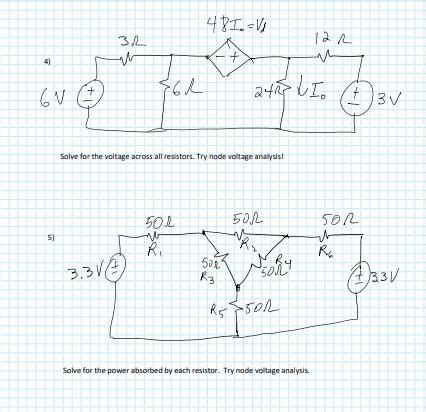 48I₀ = V₁
3Ω
12Ω
4)
- +
6V
+
-
6Ω
24Ω
↓I₀
+
-
3V
Solve for the voltage across all resistors. Try node voltage analysis!
50Ω
50Ω
50Ω
5)
R₁
R₂
R₆
3.3V
+
-
50Ω
R₃
50Ω
R₄
+
-
3.3V
R₅
50Ω
Solve for the power absorbed by each resistor. Try node voltage analysis.